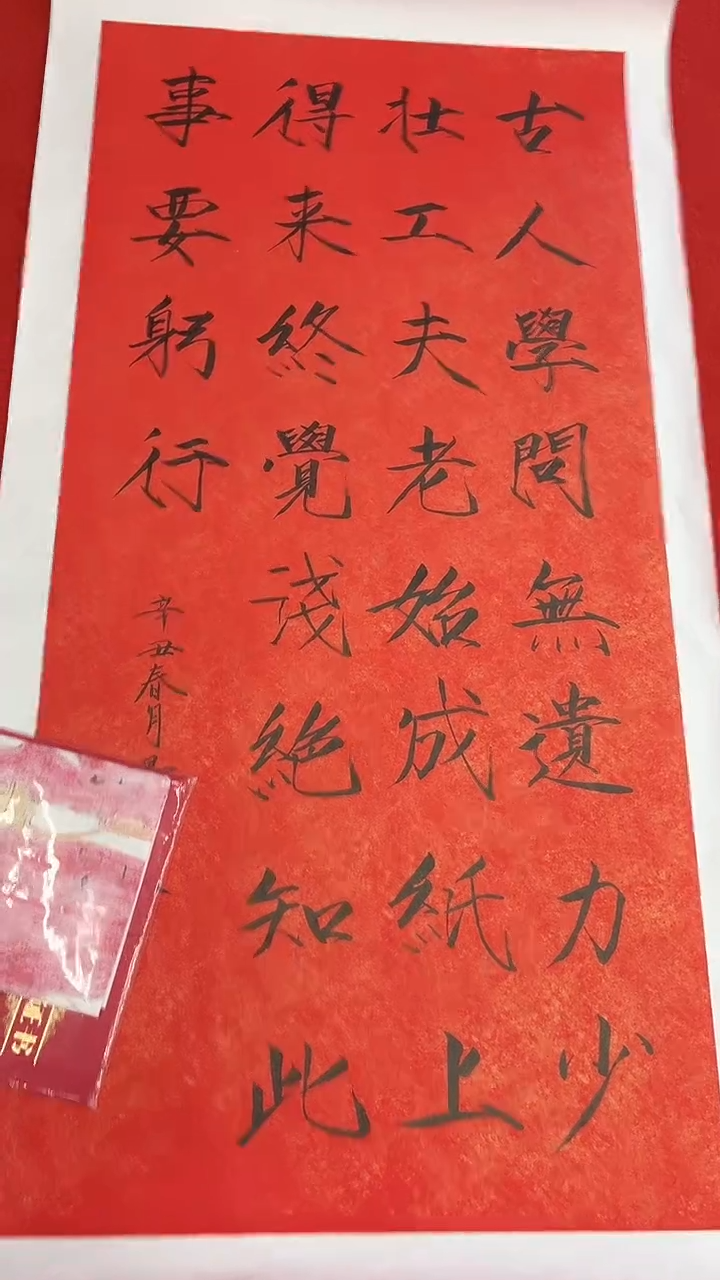 古人學問無遺力少
壯工夫老始成紙上
得来終覺淺絕知此
事要躬行
辛丑春月
证书